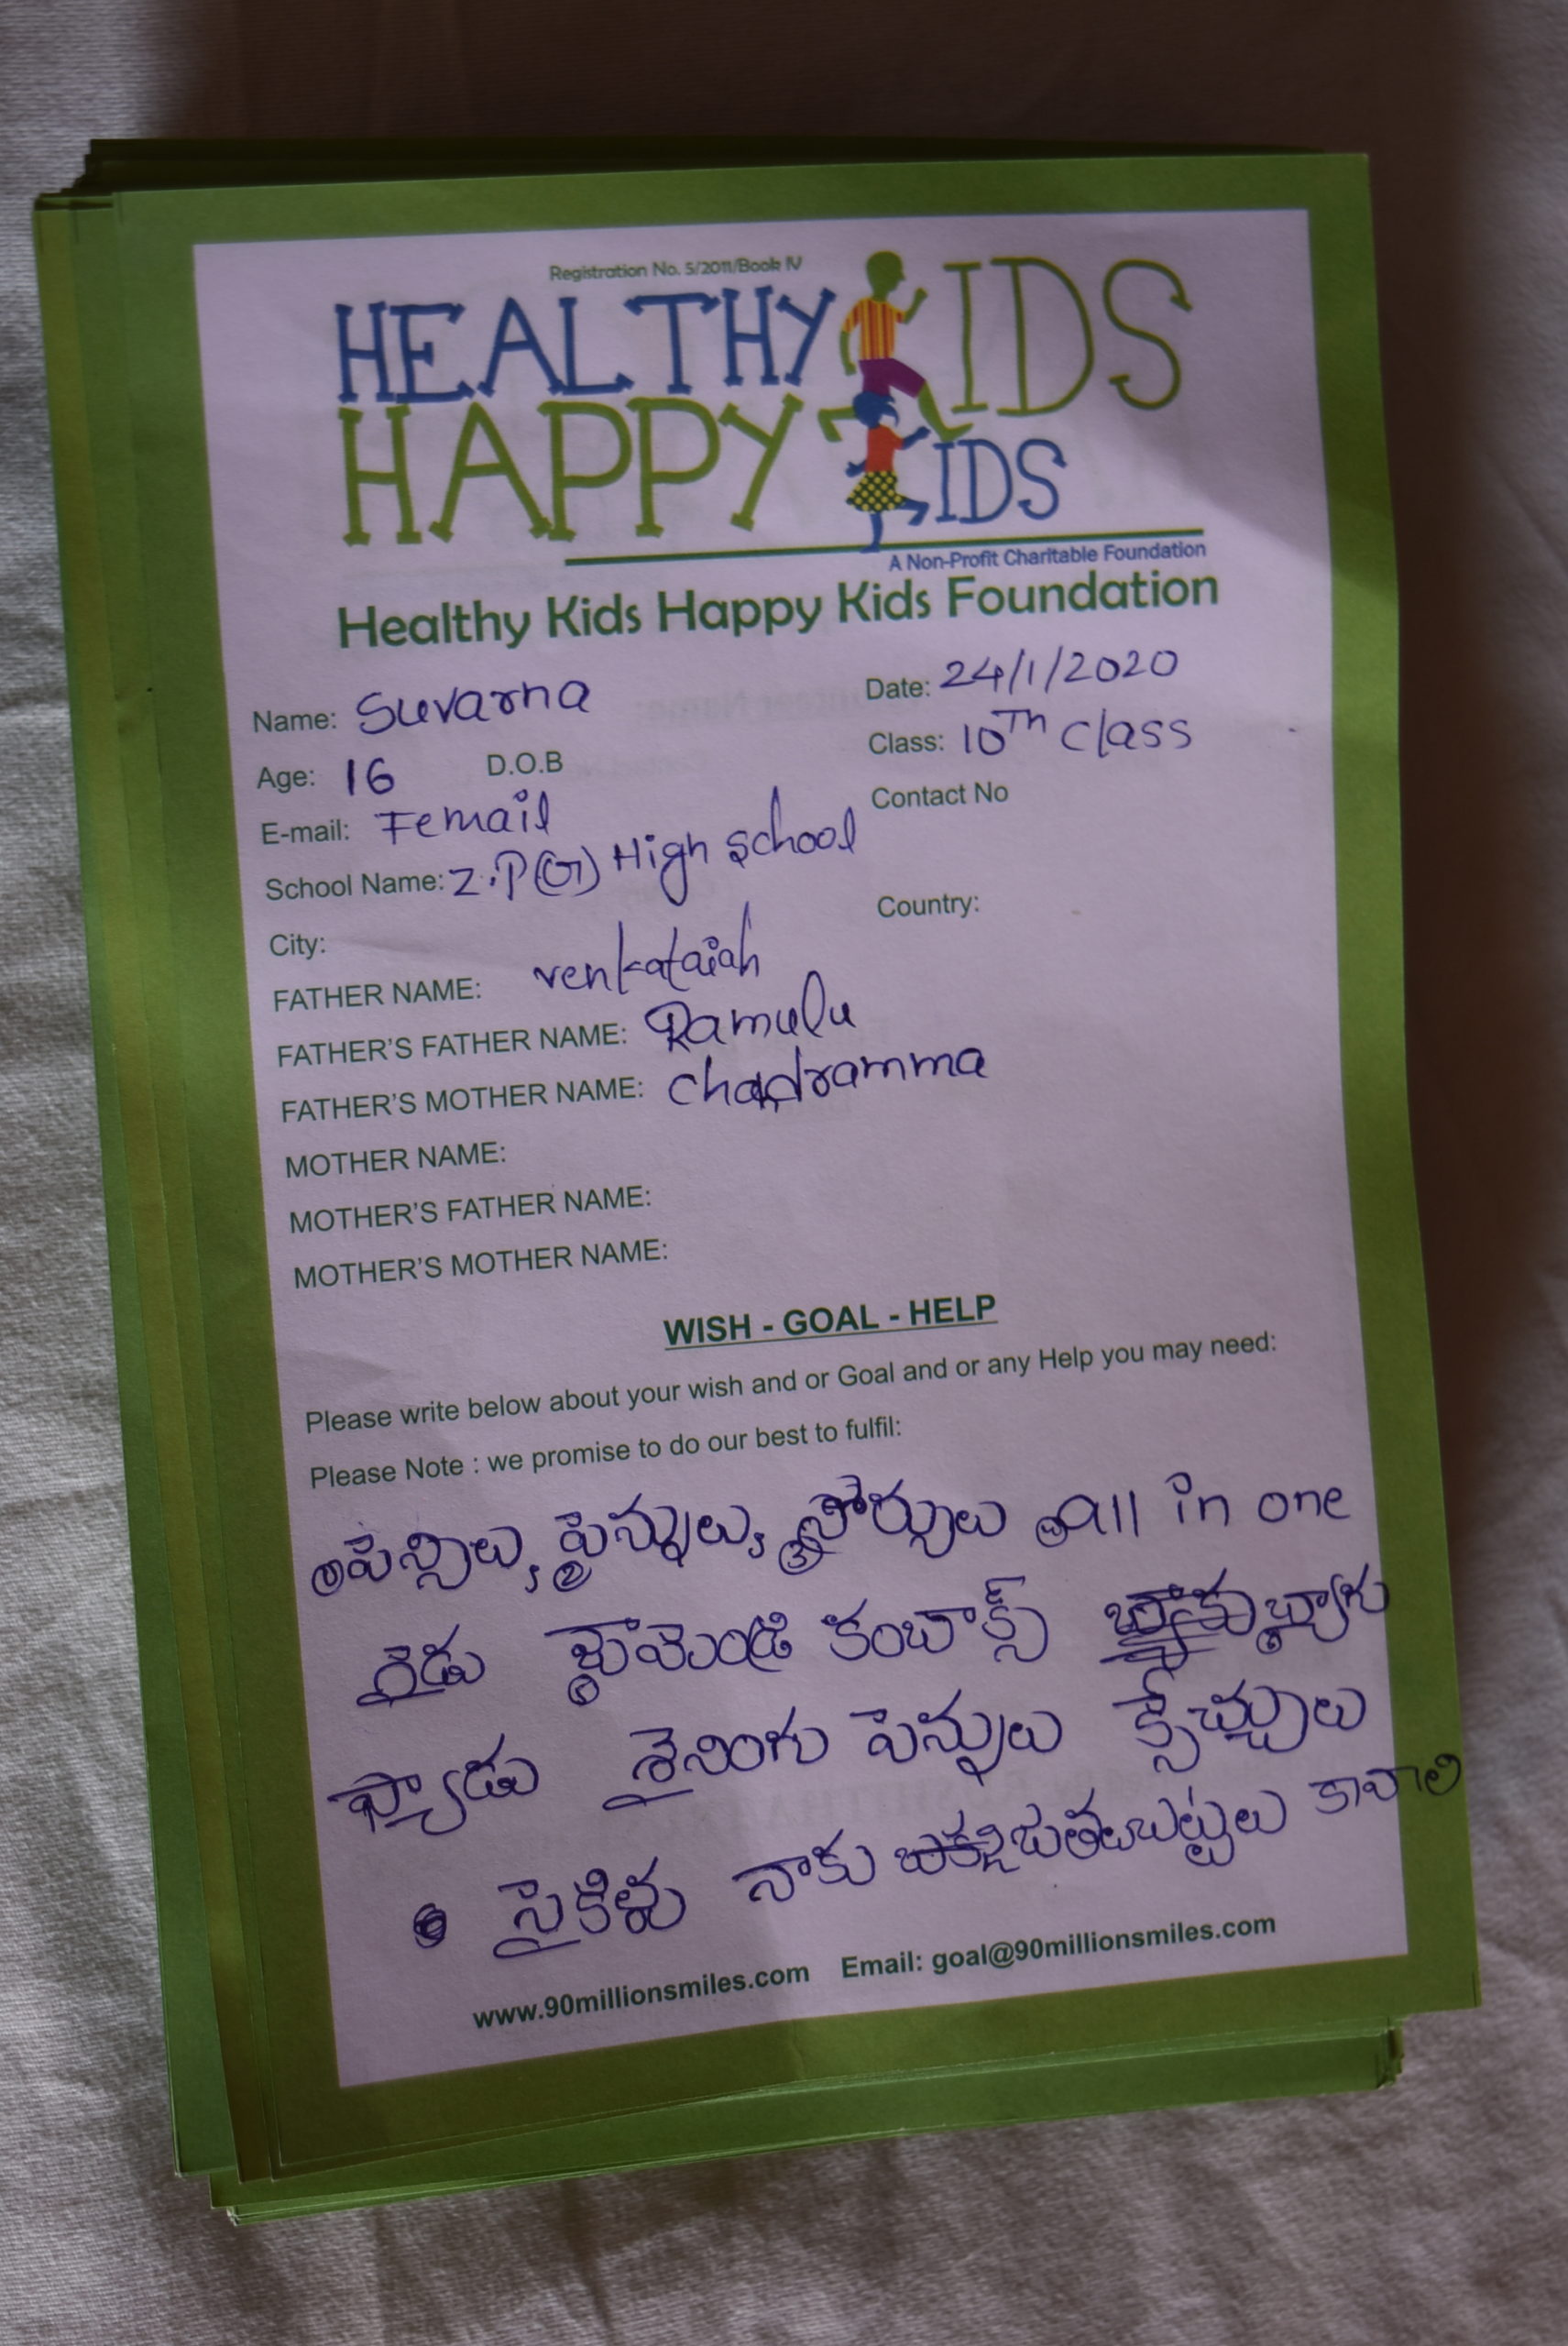 Registration No. 5/2011/Book IV
HEALTHY KIDS
HAPPY KIDS
A Non-Profit Charitable Foundation
Healthy Kids Happy Kids Foundation
Name: Suvarna Date: 24/1/2020
Age: 16 D.O.B Class: 10Th class
E-mail: Femail Contact No
School Name: Z.P(G) High school
City: Country:
FATHER NAME: venkataiah
FATHER'S FATHER NAME: Ramulu
FATHER'S MOTHER NAME: Chadramma
MOTHER NAME:
MOTHER'S FATHER NAME:
MOTHER'S MOTHER NAME:
WISH - GOAL - HELP
Please write below about your wish and or Goal and or any Help you may need:
Please Note : we promise to do our best to fulfil:
① పెన్సిలు, ② పెన్నులు, ③ all in one
గైడు కంబాక్స్ బ్యాగు
ప్యాడు శైనింగు పెన్నులు స్కేచ్చులు
సైకిళు నాకు బట్టలు కావాలి
www.90millionsmiles.com Email: goal@90millionsmiles.com